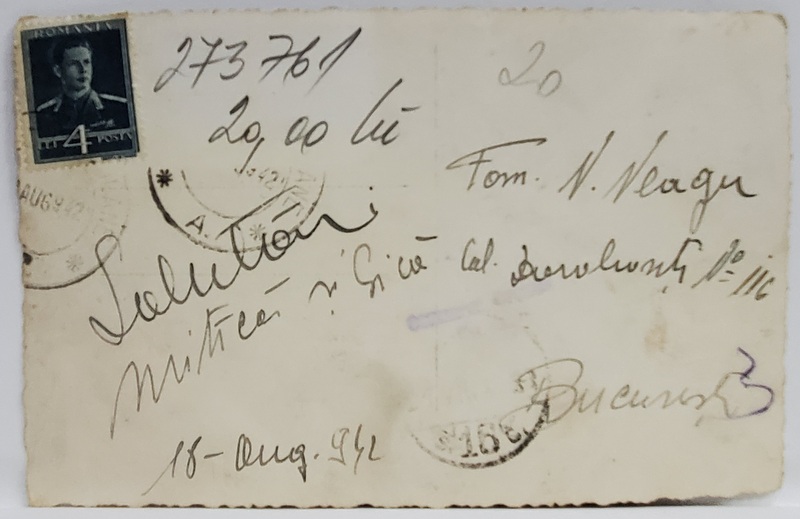 ROMANIA
4
LEI POSTA
273761
20,00 lei
20
AUG 942
42
A.
Salutări
Mitică și Gică
18 - Aug. 942
Fam. N. Neagu
Cal. Dorobanți No 116
București 3
16